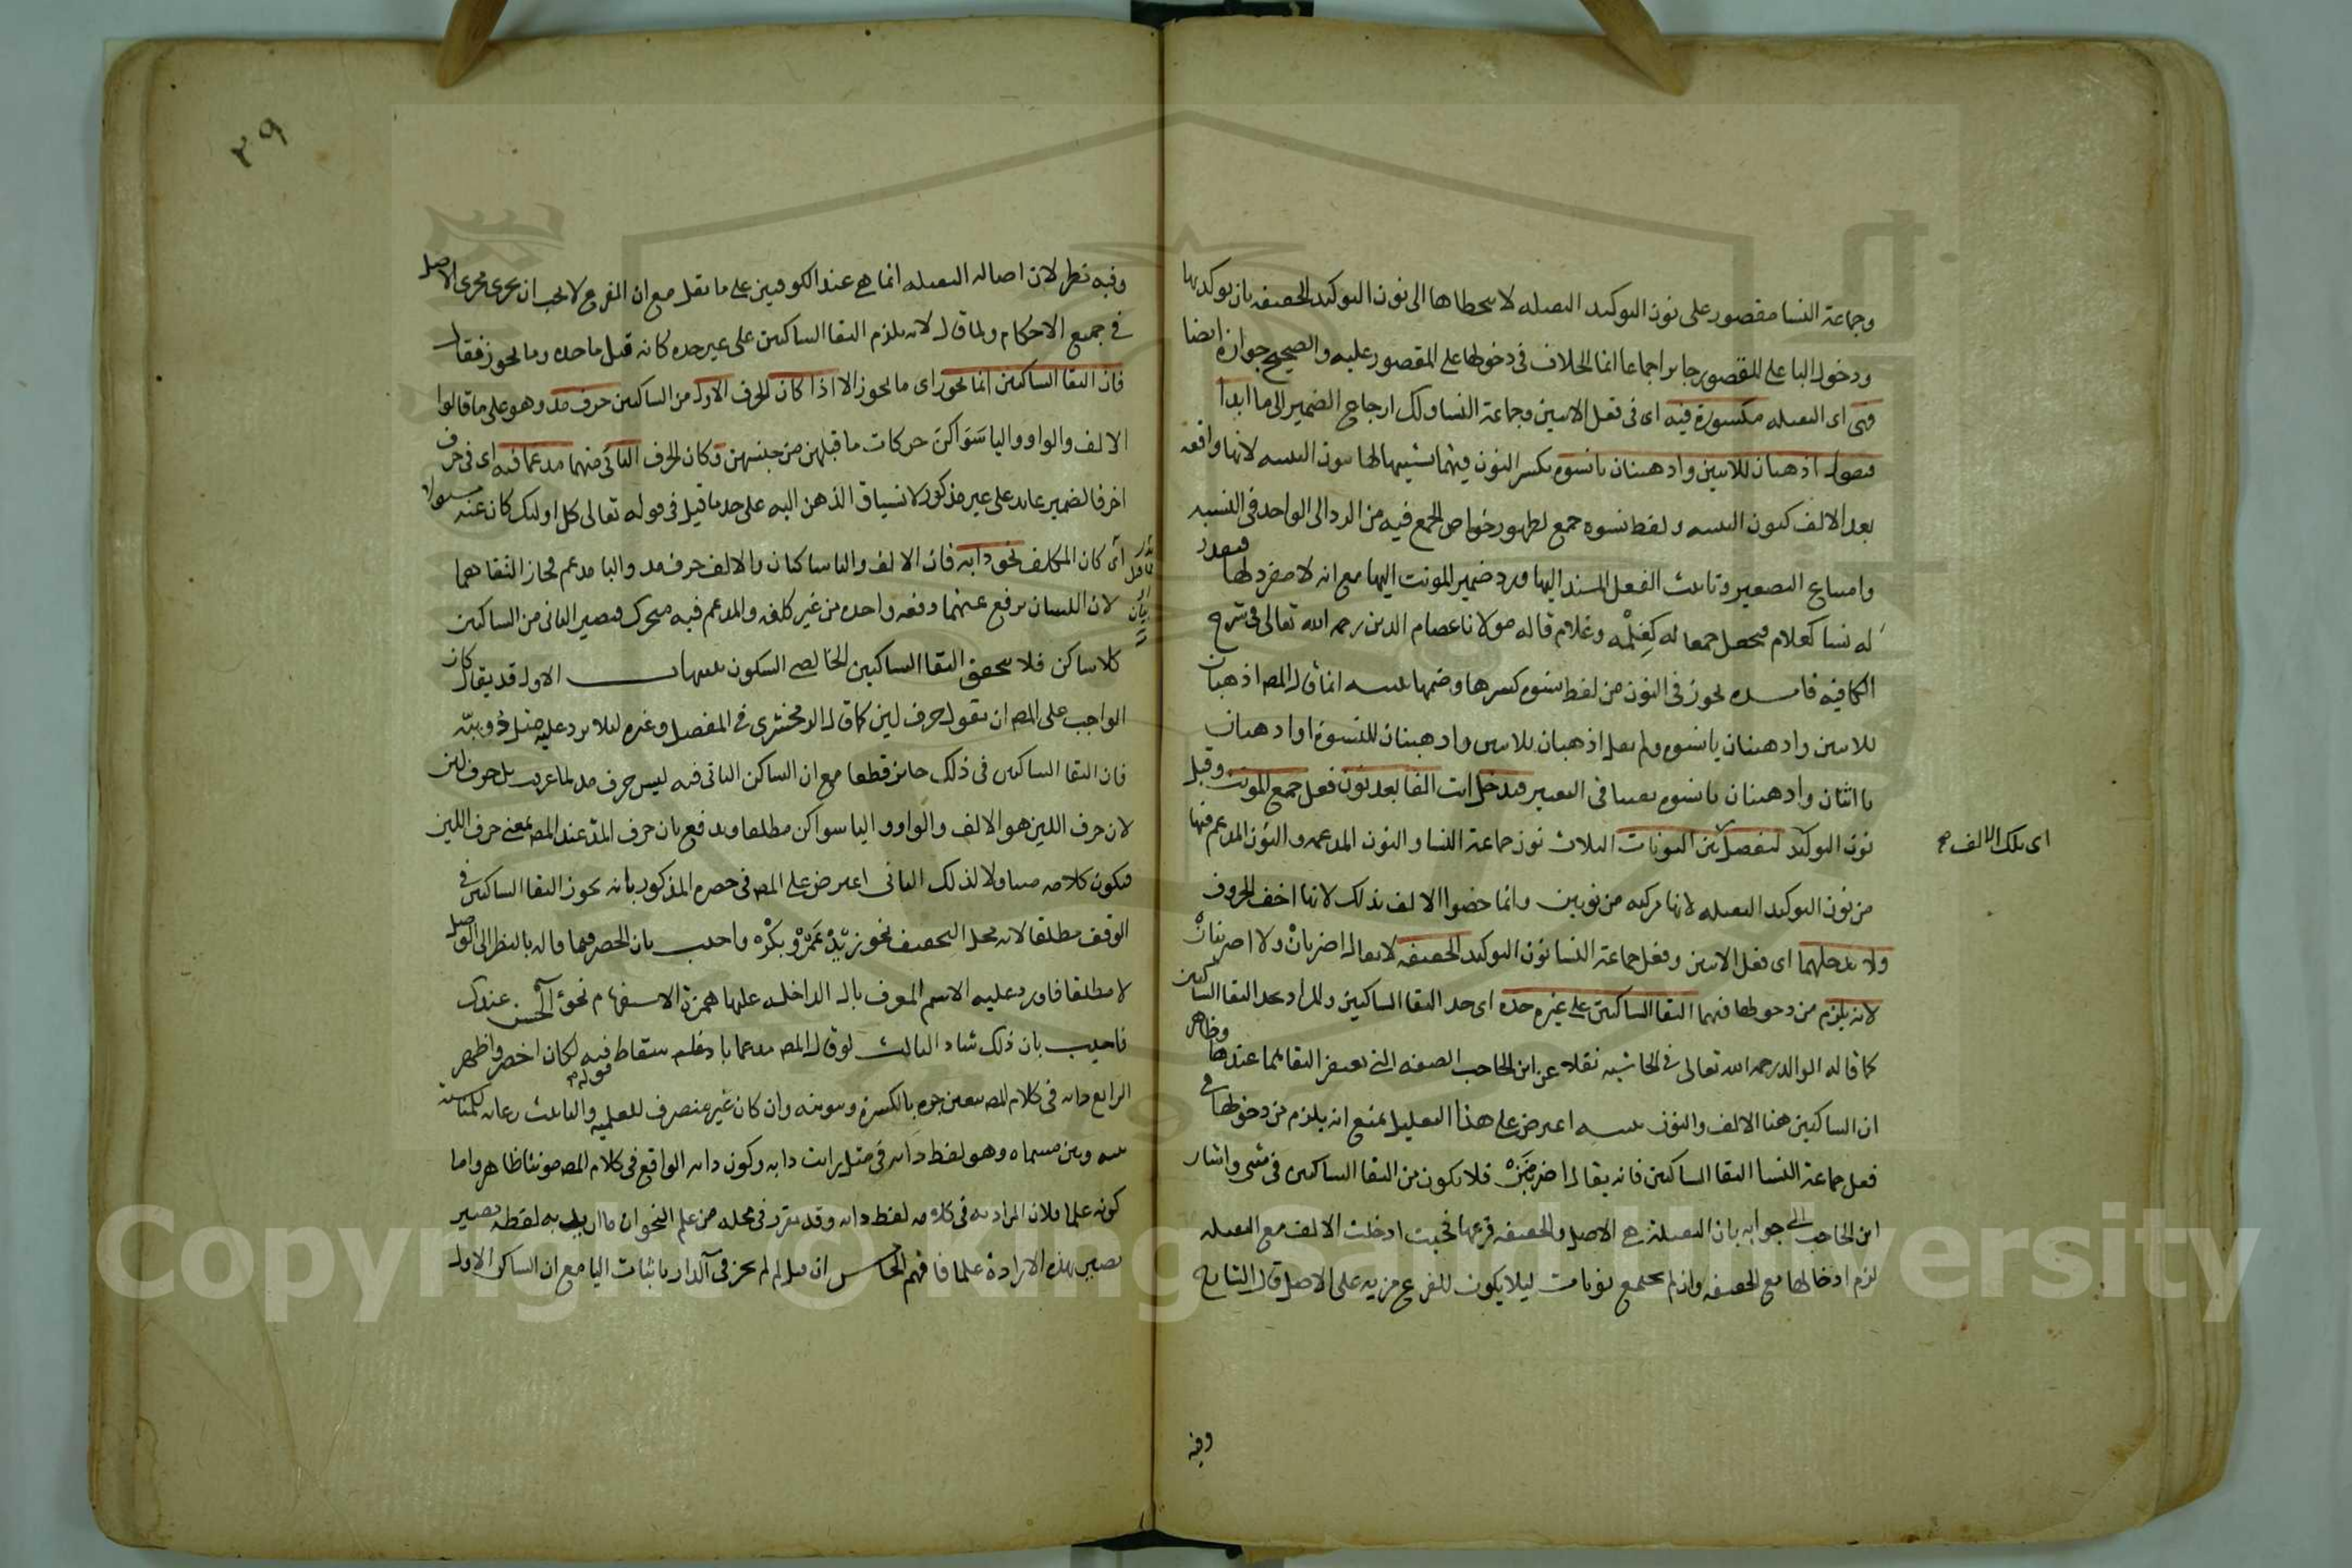 وجماعة النسا مقصور على نون التوكيد الثقيله لا يتخطاها الى نون التوكيد الخفيفه بان يوكد بها
ودخول البا على المقصور جايز اجماعا انما الخلاف فى دخولها على المقصور عليه والصحيح جوازه ايضا
فهى اى الثقيله مكسورة فيه اى فى فعل الاثنين وجماعة النسا ولك ارجاع الضمير الى ما ابدا
فتقول اذهبان للاثنين واذهبنان يانسوه بكسر النون فيهما تشبيها لها بنون التثنيه لانها واقعه
بعد الالف كنون التثنيه ولفظ نسوه جمع لظهور خواص الجمع فيه من الرد الى الواحد فى النسبه
وامتناع التصغير وتانيث الفعل المسند اليها ورد ضمير المونث اليها مع انه لا مفرد لها فيقدر
له نسا كغلام فيجعل جمعا له كغلمة وغلام قاله مولانا عصام الدين رحمه الله تعالى فى شرح
الكافيه فايده يجوز فى النون من لفظ نسوه كسرها وضمها تنبيه انما قال المصـ اذهبان
للاثنين واذهبنان يانسوه ولم يقل اذهبان للاثنين واذهبنان للنسوة او اذهبان
يا اثنان واذهبنان يانسوه تفننا فى التعبير فتدخل انت الفا بعد نون فعل جمع المونث وقبل
نون التوكيد لتفصل بين النونات الثلاث نون جماعة النسا والنون المدغمه والنون المدغم فيها
اى تلك الالف صح
من نون التوكيد الثقيله لانها مركبه من نونين وانما خصوا الالف بذلك لانها اخف الحروف
ولا تدخلهما اى فعل الاثنين وفعل جماعة النسا نون التوكيد الخفيفه لا يقال اضربان ولا اضربنان
لانه يلزم من دخولها فيهما التقا الساكنين على غير حده اى حد التقا الساكنين والمراد بحد التقا الساكنين
كما قاله الوالد رحمه الله تعالى فى الحاشيه نقلا عن ابن الحاجب الصفه التى يغتفر التقاهما عندها وظاهر
ان الساكنين هنا الالف والنون تنبيه اعترض على هذا التعليل بمنع انه يلزم من دخولها فى
فعل جماعة النسا التقا الساكنين فانه يقال اضربنن فلا يكون من التقا الساكنين فى شى واشار
ابن الحاجب الى جوابه بان الثقيلة هى الاصل والخفيفه فرعها فحيث ادخلت الالف مع الثقيله
لزم ادخالها مع الخفيفه وان لم يجتمع نونات ليلا يكون للفرع مزيه على الاصل قال الشارح
وفيه
٣٩
وفيه نظر لان اصالة الثقيله انما هى عند الكوفيين على ما نقل مع ان الفرع لا يجب ان يجرى مجرى الاصل
فى جميع الاحكام ولما قال لانه يلزم التقا الساكنين على غير حده كانه قيل ما حده وما يجوز فقال
فان التقا الساكنين انما يجوز اى ما يجوز الا اذا كان الحرف الاول من الساكنين حرف مد وهو على ما قالوا
الالف والواو واليا سواكن حركات ما قبلهن من جنسهن وكان الحرف الثانى منهما مدغما فيه اى فى حرف
اخر فالضمير عايد على غير مذكور لانسياق الذهن اليه على حد ما قيل فى قوله تعالى كل اوليك كان عنه مسولا
اى كان المكلف نحو دابه فان الالف والبا ساكنان والالف حرف مد والبا مدغم فجاز التقاهما
لان اللسان يرفع عنهما دفعه واحده من غير كلفه والمدغم فيه متحرك فيصير الثانى من الساكنين
كلا ساكن فلا يتحقق التقا الساكنين الخالصى السكون تنبيهات الاول قد يقال كان
الواجب على المصـ ان يقول حرف لين كما قال الزمخشرى فى المفصل وغيره ليلا يرد عليه مثل دويبة
فان التقا الساكنين فى ذلك جايز قطعا مع ان الساكن الثانى فيه ليس حرف مد لما عرفت بل حرف لين
لان حرف اللين هو الالف والواو واليا سواكن مطلقا ويدفع بان حرف المد عند المصـ بمعنى حرف اللين
فيكون كلامه متناولا لذلك الثانى اعترض على المصـ فى حصره المذكور بانه يجوز التقا الساكنين فى
الوقف مطلقا لانه محل التخفيف نحو زيد عمرو بكر واجيب بان الحصر فيما قاله بالنظر الى الوصل
لا مطلقا فاورد عليه الاسم المعرف بال الداخله عليها همزة الاستفهام نحو آلحسن عندك
فاجيب بان ذلك شاذ الثالث لو قال المصـ مدغما باسقاط فيه لكان اخصر واظهر
الرابع دابه فى كلام المصـ يتعين جره بالكسرة وتنوينه وان كان غير منصرف للعلميه والتانيث رعاية للمناسبة
بينه وبين مسماه وهو لفظ دابه فى مثل رايت دابه وكون دابه الواقع فى كلام المصـ مونثا ظاهر واما
كونه علما فلان المراد به فى كلامه لفظ دابه وقد تقرر فى محله من علم النحو ان ما اريد به لفظه يصير
يصير بهذه الارادة علما فافهم الخامس ان قيل لم لم يجز فى آلدار باثبات اليا مع ان الساكن الاول